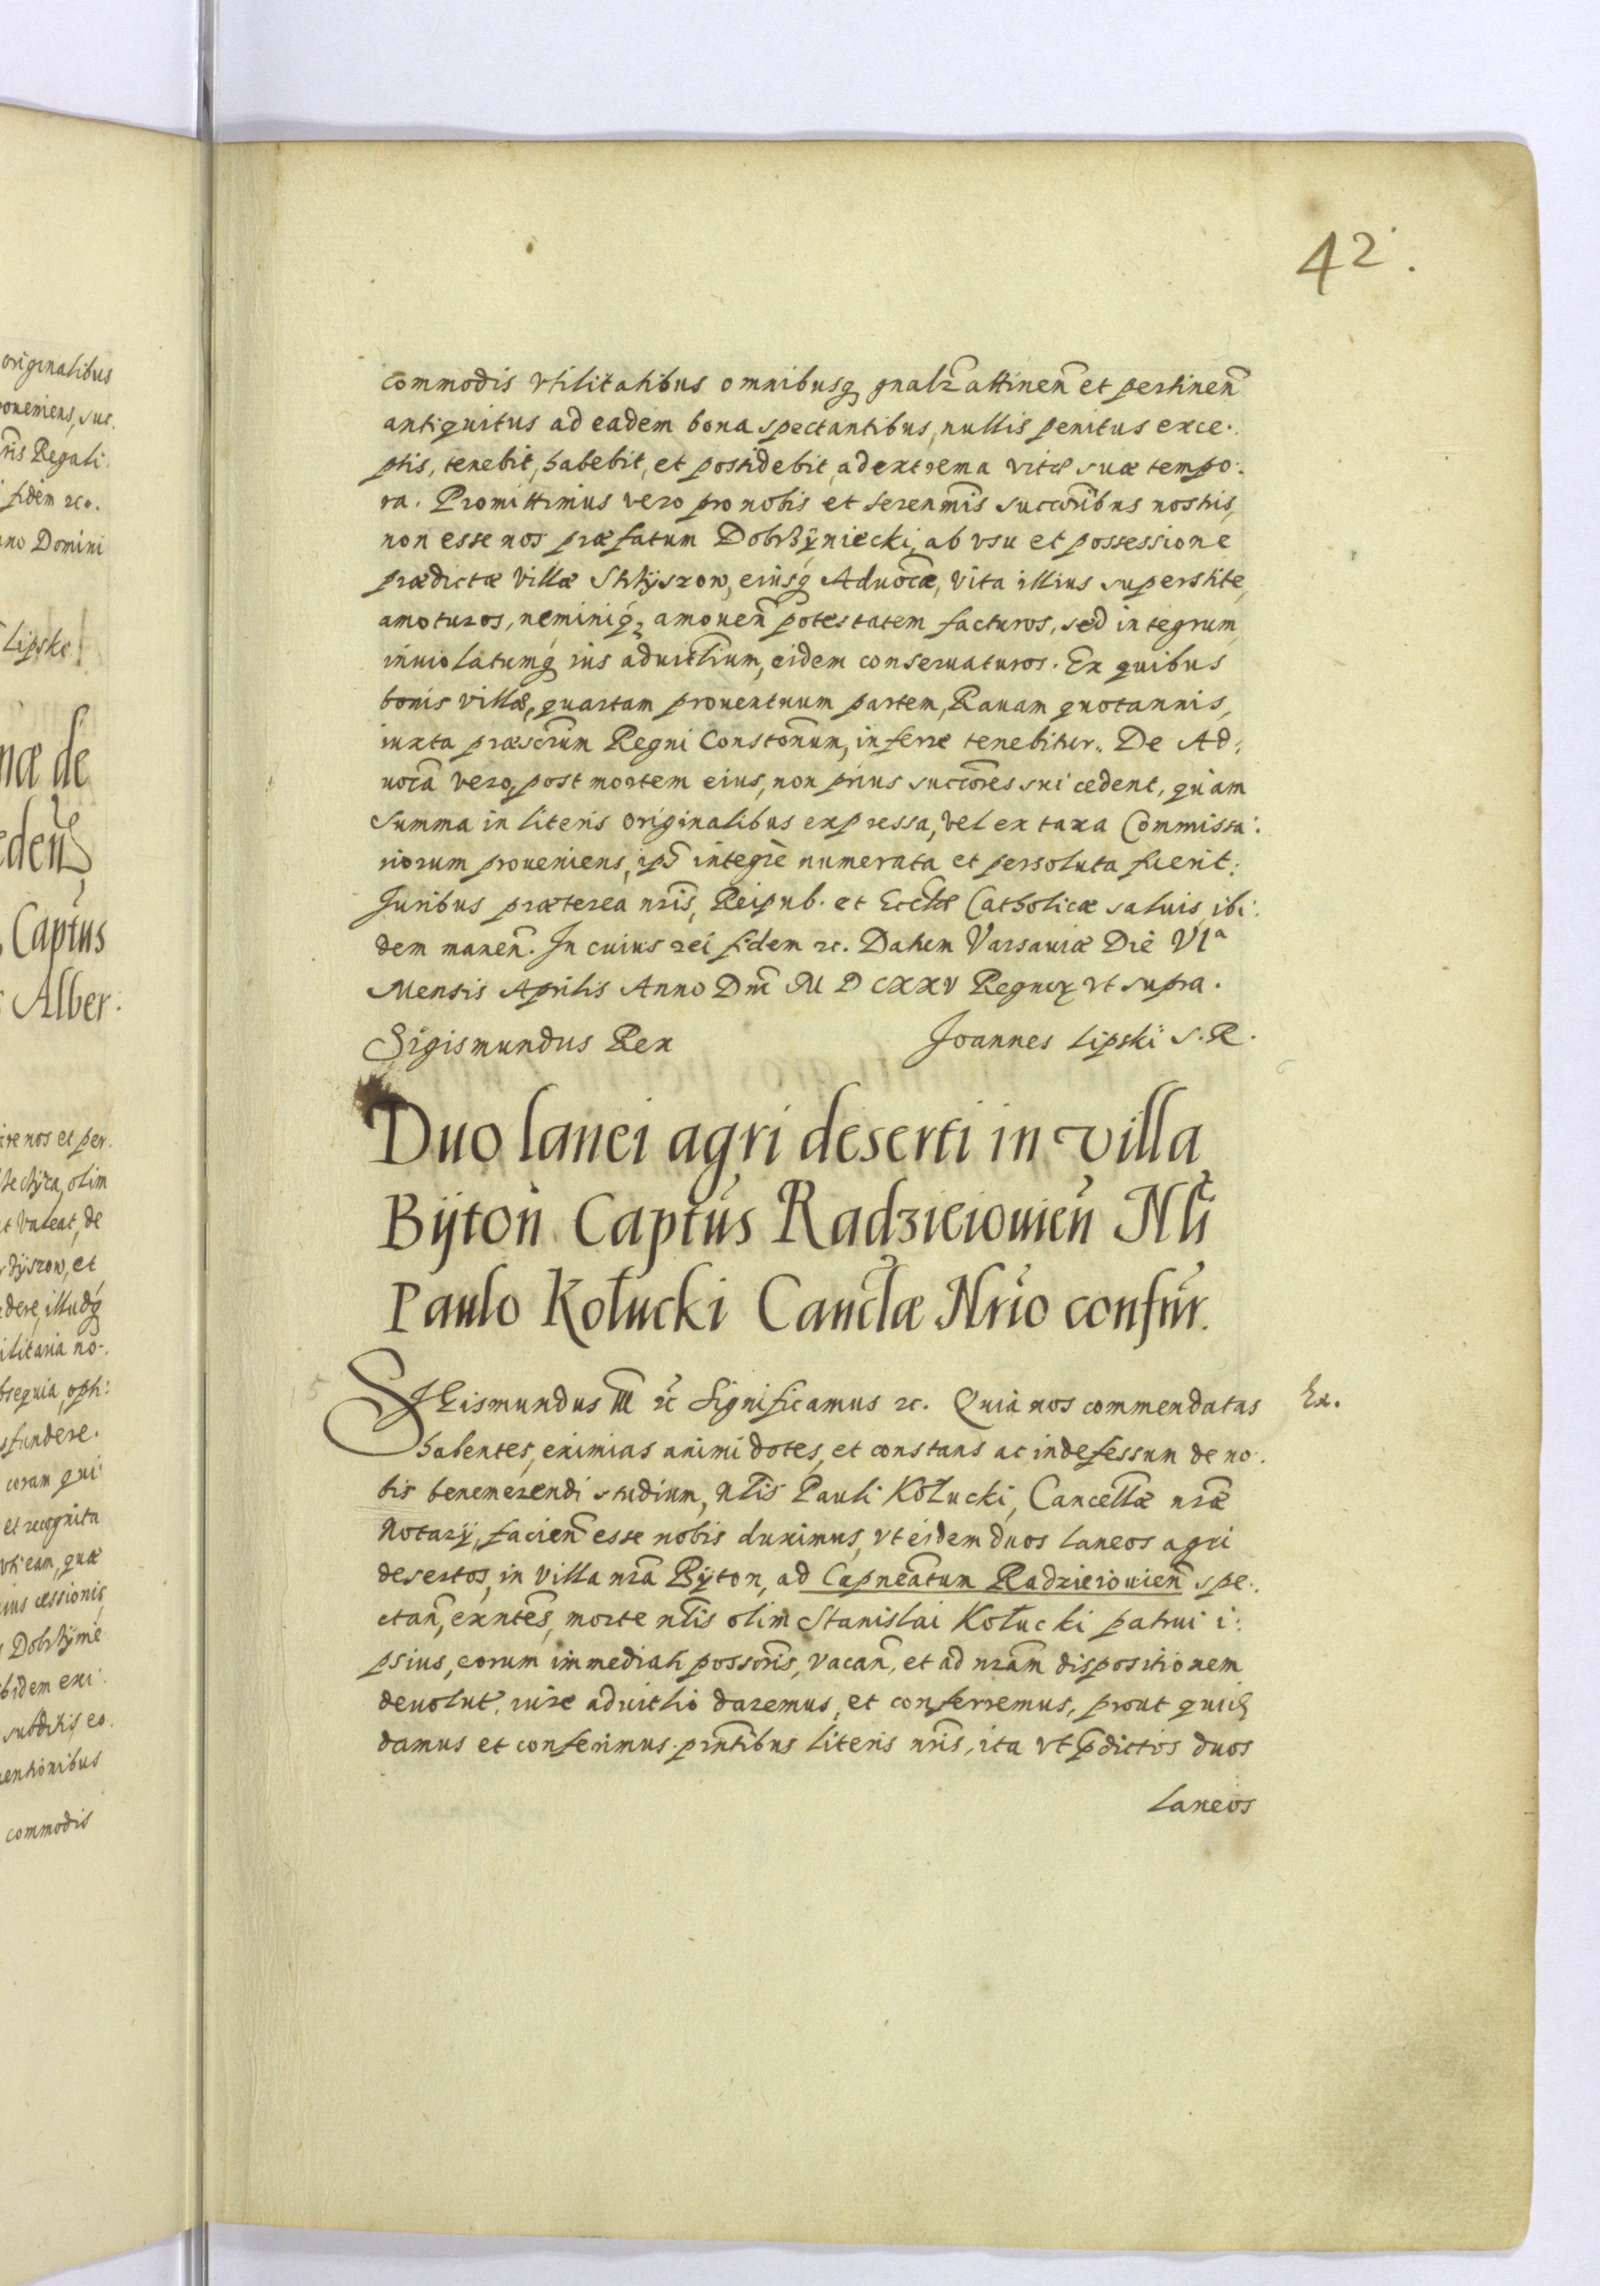 42.
commodis vtilitatibus omnibusq gnalr attinen et pertinen
antiquitus ad eadem bona spectantibus, nullis penitus exce:
ptis, tenebit, habebit, et possidebit, ad extrema vitæ suæ tempo:
ra. Promittimus vero pro nobis et serenmis succoribus nostris,
non esse nos præfatum Dobrzÿniecki, ab vsu et possessione
prædictæ villæ Strÿszow, eiusq Aduocæ, vita illius superstite,
amoturos, neminiq, amouen potestatem facturos, sed integrum
inuiolatumq ius aduitlium, eidem conseruaturos. Ex quibus
bonis villæ, quartam prouentuum partem, Rauam quotannis,
iuxta præscrum Regni Constonum, inferre tenebitur. De Ad:
uoca vero, post mortem eius, non prius succores sui cedent, quam
summa in literis originalibus expressa, vel ex taxa Commissa:
riorum proueniens, ips integre numerata et persoluta fuerit.
Juribus præterea nris, Reipub. et Eccliæ Catholicæ saluis ibi:
dem manen. In cuius rei fidem &c. Datum Varsauiæ Die VIa
Mensis Aprilis Anno Dni M D CXXV Regnor vt supra.
Sigismundus Rex
Joannes Lipski S. R.
Duo lanei agri deserti in villa
Bÿton Captus Radzieiouien Nli
Paulo Kołucki Canclæ Nrio confur.
SIGismundus III &c Significamus &c. Quia nos commendatas
Ex.
habentes, eximias animi dotes, et constans ac indefessum de no:
bis benemerendi studium, Nlis Pauli Kołucki, Cancellæ nræ
Notarÿ, facien esse nobis duximus, vt eidem duos laneos agri
desertos, in villa nra Bÿton, ad Capneatum Radzieiouien spe:
ctan, exntes, morte nlis olim Stanislai Kołucki patrui i:
psius, eorum immediati possoris, vacan, et ad nram dispositionem
deuolut, iure aduitlio daremus, et conferremus, prout quid
damus et conferimus pntibus literis nris, ita vt pdictos duos
laneos